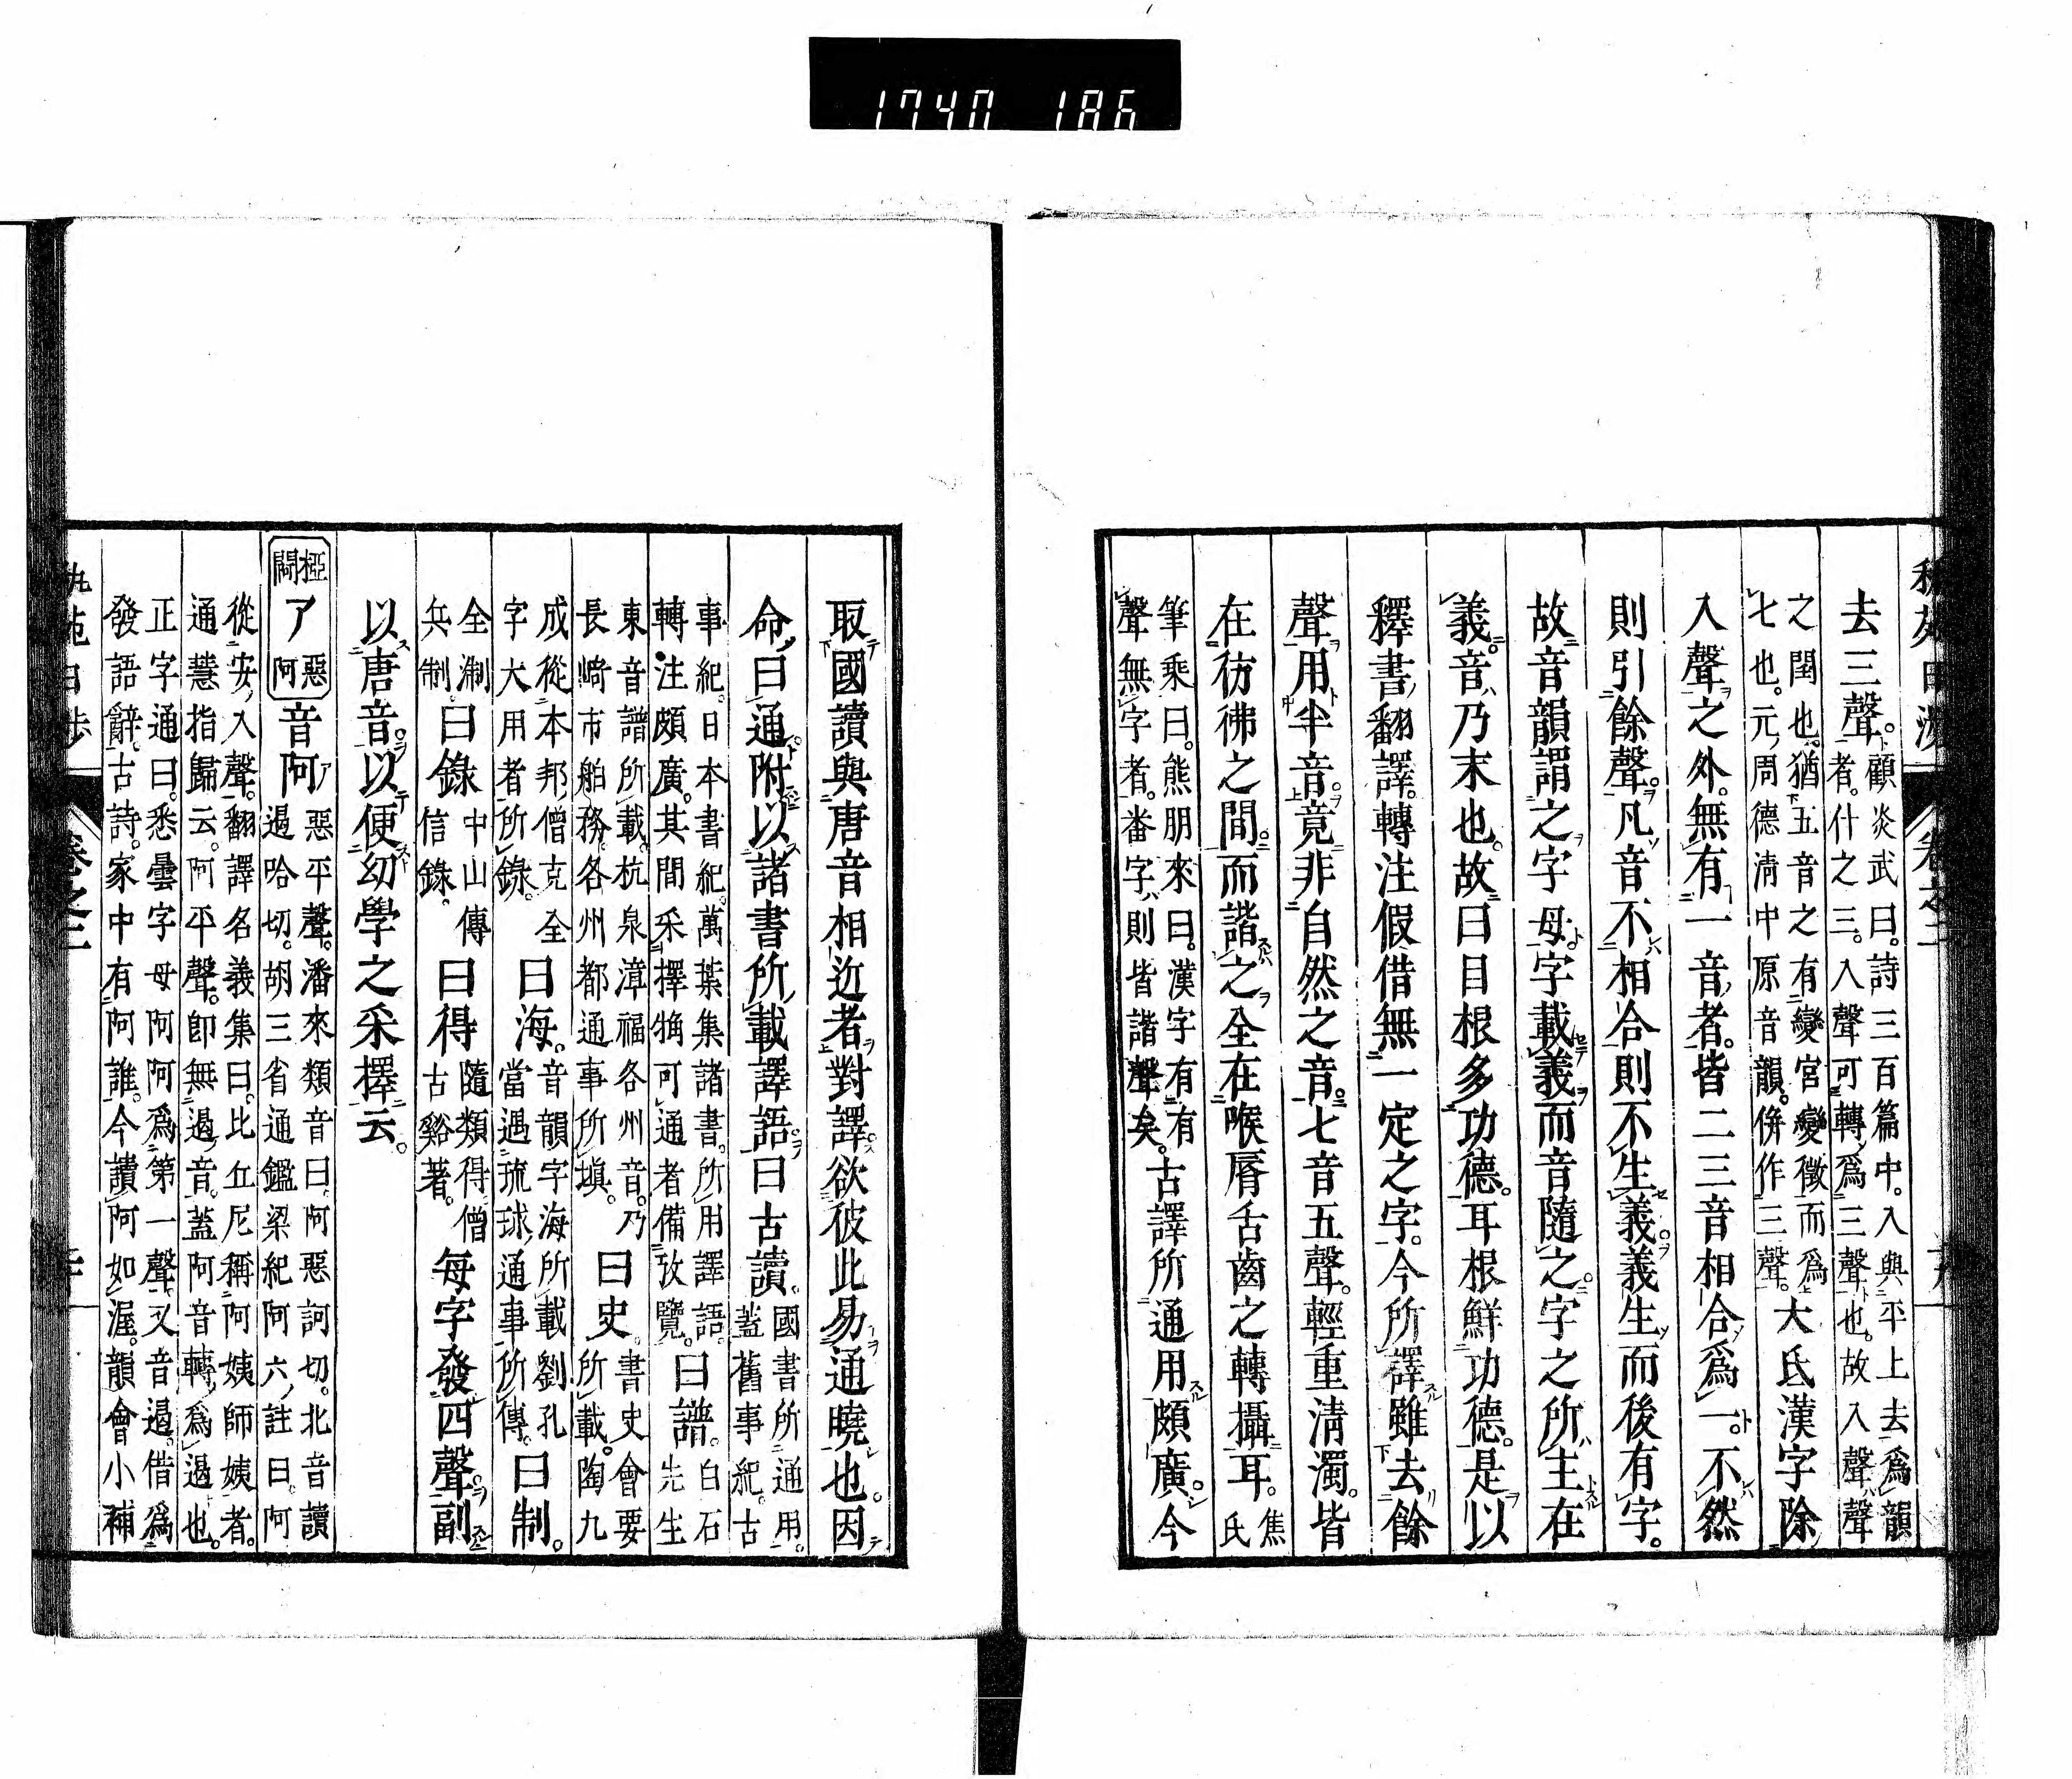 1740 186
去三聲。顧炎武曰。詩三百篇中。入與平上去爲韻
者。什之三。入聲可轉爲三聲也。故入聲聲
之閏也。猶五音之有變宮變徵而爲
七也。元周德淸中原音韻。併作三聲。大氐漢字除
入聲之外。無有一音者。皆二三音相合爲一。不然
則引餘聲。凡音不相合則不生義。義生而後有字。
故音韻謂之字母。字載義而音隨之。字之所主在
義。音乃末也。故曰目根多功德。耳根鮮功德。是以
釋書翻譯。轉注假借無一定之字。今所譯雖去餘
聲用半音。竟非自然之音。七音五聲。輕重淸濁。皆
在彷彿之間。而諧之全在喉脣舌齒之轉攝耳。焦氏
筆乘曰。熊朋來曰。漢字有有
聲無字者。畨字則皆諧聲矣。古譯所通用頗廣。今
取國讀與唐音相近者對譯。欲彼此易通曉也。因
命曰通附以諸書所載譯語。曰古讀。國書所通用。
蓋舊事紀。古
事紀。日本書紀。萬葉集諸書。所用譯語。
轉注頗廣。其間采擇犄可通者備攷覽。曰譜。白石
先生
東音譜所載。杭泉漳福各州音。乃
長崎市舶務。各州都通事所塡。曰史。書史會要
所載。陶九
成從本邦僧克全
字大用者所錄。曰海。音韻字海所載劉孔
當遇琉球通事所傳。曰制。
全淛
兵制。曰錄中山傳
信錄。曰得隨類得僧
古谿著。每字發四聲。副
以唐音。以便幼學之采擇云。
椏閜 ア 惡阿 音阿惡平聲。潘來類音曰。阿惡訶切。北音讀
遏哈切。胡三省通鑑梁紀阿六註曰。阿
從安入聲。翻譯名義集曰。比丘尼稱阿姨師姨者。
通慧指歸云。阿平聲。卽無遏音。蓋阿音轉爲遏也。
正字通曰。悉曇字母阿阿爲第一聲。又音遏。借爲
發語辭。古詩。家中有阿誰。今讀阿如渥。韻會小補